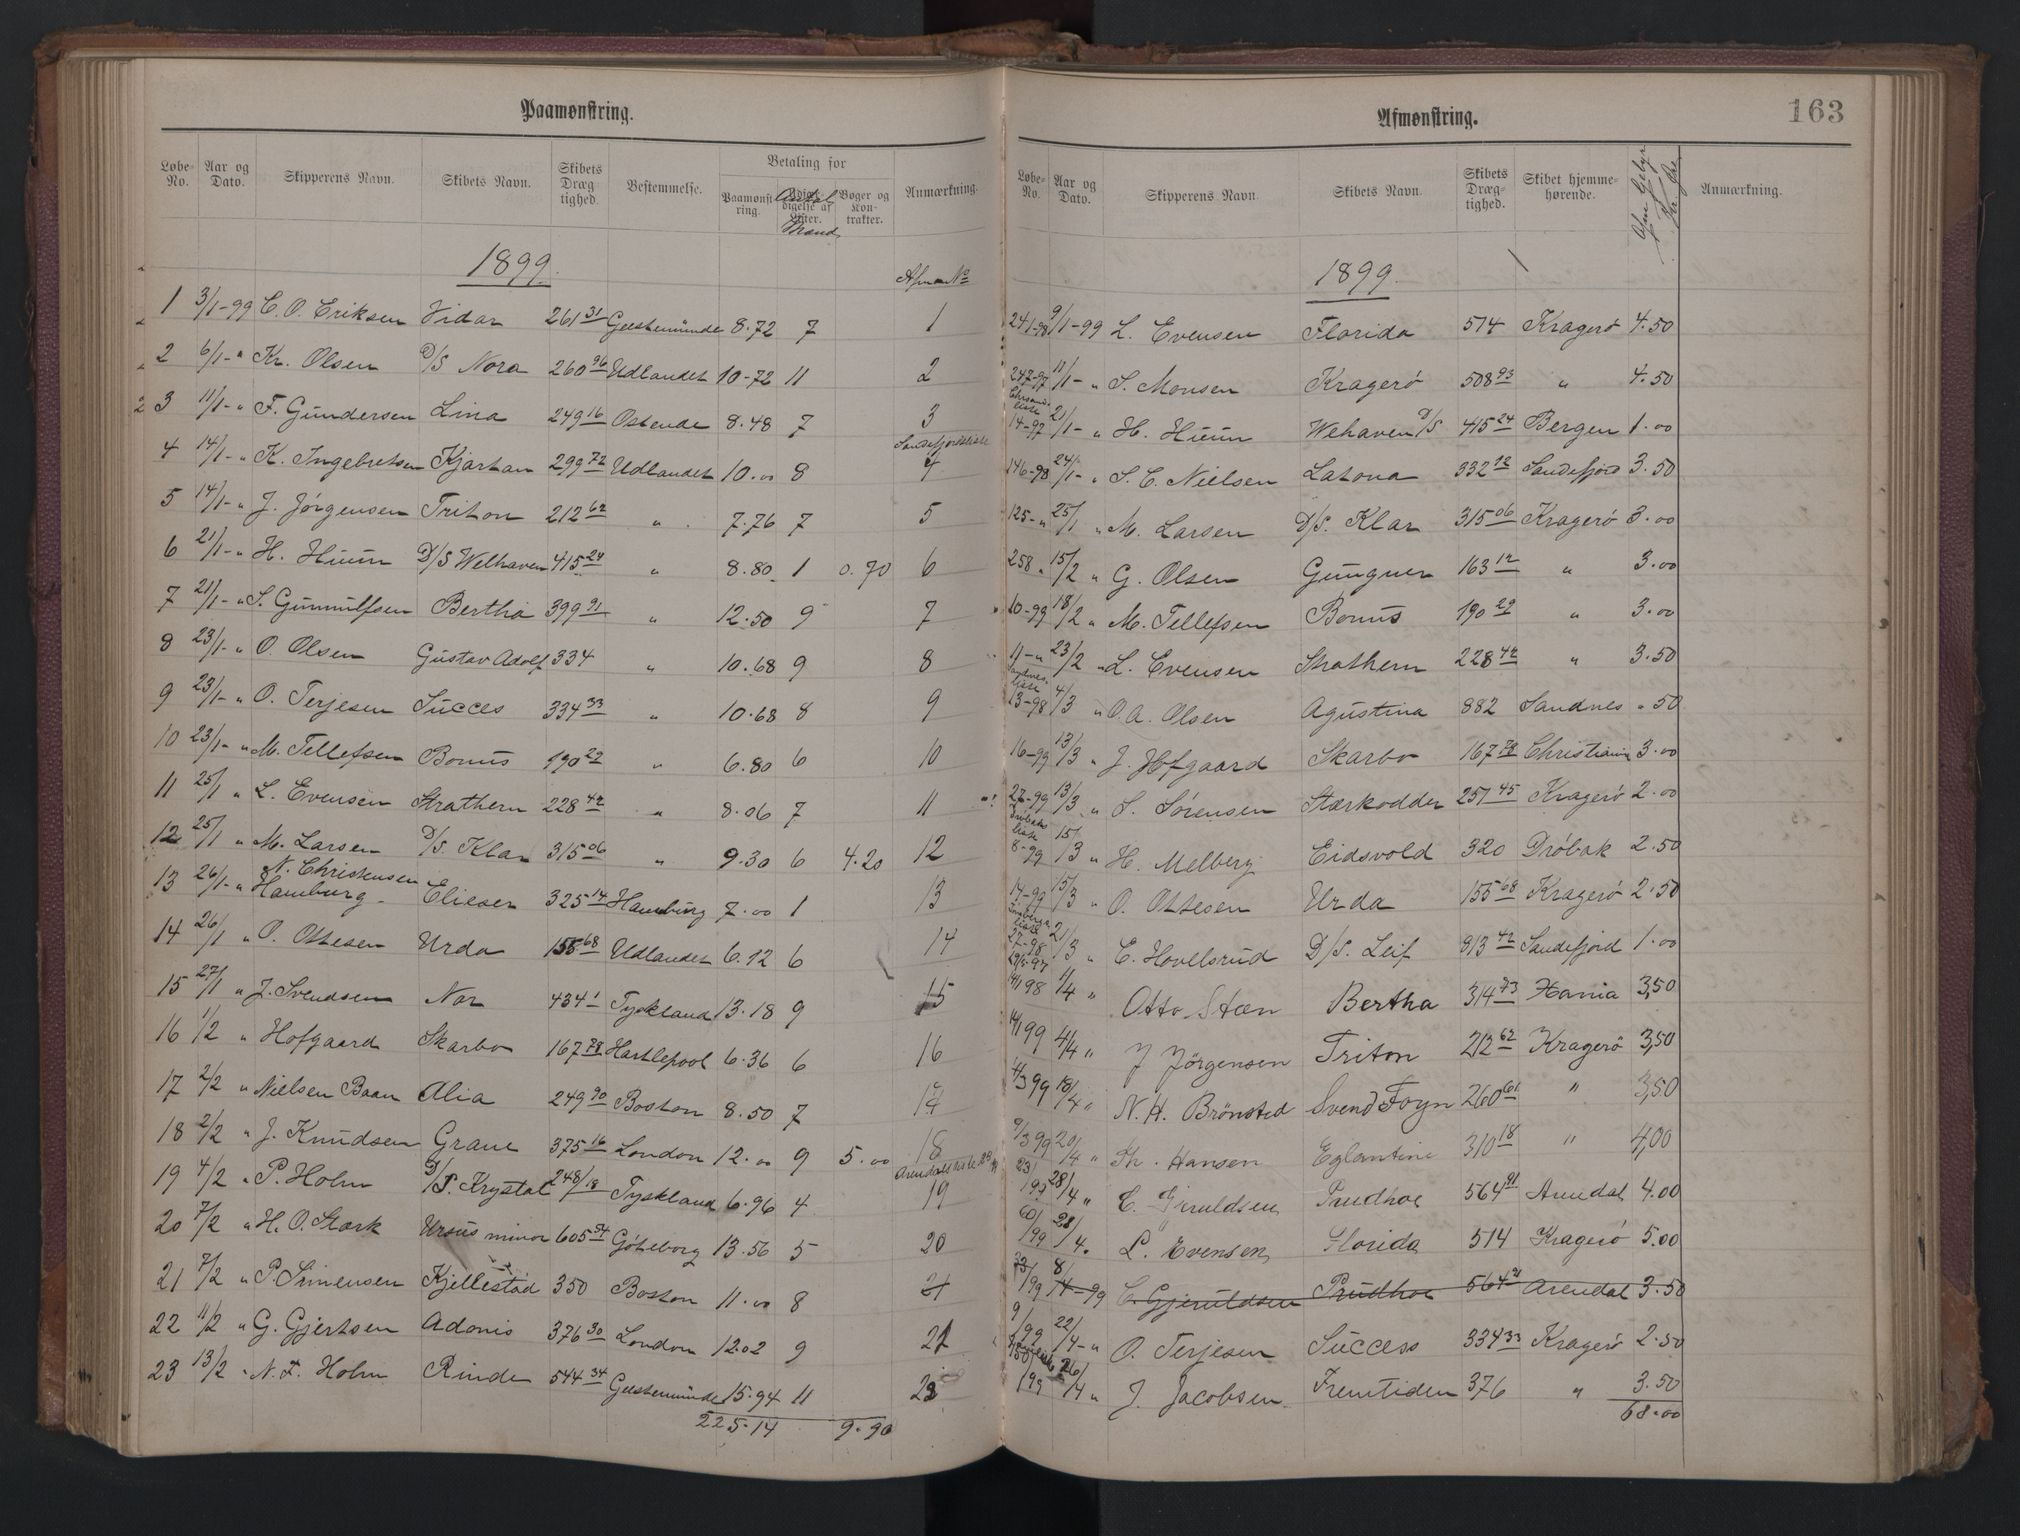 Paamønstring.
Løbe-No. Aar og Dato. Skipperens Navn. Skibets Navn. Skibets Dræg-tighed. Bestemmelse. Betaling for Paamønstring. Antal Mand Bøger og Kon-trakter. Anmærkning.
1899. Afm No
1 3/1-99 C. O. Eriksen Vidar 261 31 Geestemünde 8.72 7 1
2 6/1- " Kr. Olsen D/S Nora 260 96 Udlandet 10-72 11 2
3 11/1- " F. Gundersen Lina 249 16 Ostende 8.48 7 3
4 14/1- " K. Ingebretsen Kjartan 299 72 Udlandet 10.00 8 Sandefjordsliste 4
5 14/1- " J. Jørgensen Triton 212 62 " 7.76 7 5
6 21/1- " H. Huun D/S Welhaven 415 24 " 8.80 1 0.70 6
7 21/1- " S. Gunnulfsen Bertha 399 91 " 12.50 9 7
8 23/1- " O. Olsen Gustav Adolf 334 " 10.68 9 8
9 23/1- " O. Terjesen Succes 334 33 " 10.68 8 9
10 23/1- " M. Tellefsen Bonus 190 29 " 6.80 6 10
11 25/1 " L. Evensen Strathern 228 42 " 8.06 7 11
12 25/1 " M. Larsen D/S. Klar 315 06 " 9.30 6 4.20 12
13 26/1- " N. Christensen Hamburg- Elieser 325 14 Hamburg 7.00 1 13
14 26/1 " O. Ottesen Urda 155 68 Udlandet 6.12 6 14
15 27/1 " J. Svendsen Nor 434 1 Tyskland 13.18 9 15
16 1/2 " Hofgaard Skarbo 167 78 Hartlepool 6.36 6 16
17 2/2 " Nielsen Baan Alia 249 90 Boston 8.50 7 17
18 2/2 " J. Knudsen Grane 375 16 London 12.00 9 5.00 18
19 4/2 " P. Holm D/S. Krystal 248/18 Tyskland 6.96 4 19
20 7/2 " H. O. Stærk Ursus minor 605 94 Göteborg 13.56 5 20
21 7/2 " P. Simensen Kjellestad 350 Boston 11.00 8 21
22 11/2 " G. Gjertsen Adonis 376 30 London 12.02 9 21
23 13/2 " N. F. Holm Rinde 544 34 Geestemünde 15.94 11 23
225.14 9.90
Afmønstring. 163
Løbe-No. Aar og Dato. Skipperens Navn. Skibets Navn. Skibets Dræg-tighed. Skibet hjemme-hørende. Afm Gebyr Kr. Øre Anmærkning.
1899.
241-98 9/1-99 L. Evensen Florida 514 Kragerö 4.50
247-97 11/1- " S. Monsen Kragerö 508 93 " 4.50
14-97 21/1- " H. Huun Wehaven D/S 415 24 Bergen 1.00
146-98 24/1- " S. C. Nielsen Latona 332 12 Sandefjord 3.50
125-" 25/1 " M. Larsen D/S. Klar 315 06 Kragerö 3.00
258 " 15/2 " G. Olsen Gungner 163 12 " 3.00
10-99 18/2 " M. Tellefsen Bonus 190 29 " 3.00
11-" 23/2 " L. Evensen Strathern 228 42 " 3.50
Sandnes-liste
13-98 4/3 " O. A. Olsen Agustina 882 Sandnes " 50
16-99 13/3 " J. Hofgaard Skarbo 167 78 Christiania 3.00
27-99 13/3 " S. Sørensen Stærkodder 251 45 Kragerö 2.00
Dröbaks liste
8-99 15/3 " H. Melberg Eidsvold 320 Dröbak 2.50
14-99 15/3 " O. Ottesen Urda 155 68 Kragerö 2.50
27-98 21/3 " E. Hovelsrud D/S. Leif 913 42 Sandefjord 1.00
1/4 " Otto Stæn Bertha 314 73 3,50
14/1 99 4/4 " J Jörgensen Triton 212 62 Kragerö 3,50
1/3 99 18/4 " N. H. Brönsted Svend Foyn 260 61 " 3,50
9/3 99 20/4 " Th. Hansen Eglantine 310 18 " 4,00
23/199 28/4 " C. Gjeruldsen Prudhoe 564 91 Arendal 4.00
60/99 28/4. L. Evensen Florida 514 Kragerö 5.00
23/199 8/4-99 C. Gjeruldsen Prudhoe 564 91 Arendal 3.50
9/199 22/4-" O. Terjesen Success 334 33 Kragerö 2.50
26/4 " J. Jacobsen Fremtiden 376 " 3.50
68.00